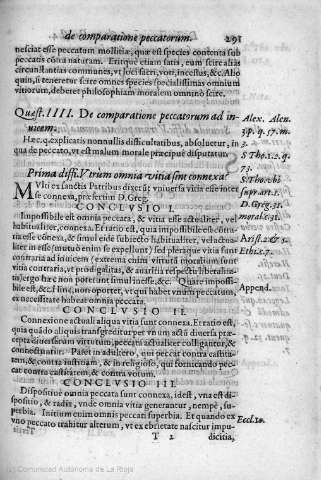 de comparatione peccatorum. 291
nesciat esse peccatum mollitiæ, quæ est species contenta sub
peccatis cōtra naturam. Erit quæ etiam satis, eum scire alias
circunstantias communes, vt loci sacri, voti, incestus, & c. Alio
quin, si teneretur scire omnes species specialissimas omnium
vitiorum, deberet philosophiam moralem omninò scire.
Quæst. IIII. De comparatione peccatorum ad in-
uicem.
Alex. Alen.
3p. q. 57. m.
3.
Hæc. q. explicatis nonnullis difficultatibus, absoluetur, in
qua de peccato, vt est malum morale præcipuè disputatur
S Tho. 1.2. q.
73.
Prima diffi. Vtrum omnia vitia sint connexa?
S. Tho. vbi
supr art. 1.
MVlti ex sanctis Patribus dixerūt vniuersa vitia esse inter
se connexa, præsertim D. Greg.
D. Greg. 31.
moral. c. 31.
CONCLVSIO I.
Impossibile est omnia peccata, & vitia esse actualiter, vel
habitualiter, connexa. Et ratio est, quia impossibile est cōtra
ria esse cōnexa, & simul eidē subiecto habitualiter, vel actua
liter in esse (mutuò enim se expellunt) sed pleraque vitia sunt
Arist. 2. & 5.
Ethic. 7.
contraria ad inuicem (extrema enim virtutū oppositum sunt
vitia contraria, vt prodigalitas, & auaritia respectu liberalita-
tis) ergo hæc non poterunt simul inesse, & c. Quare impossi-
bile est, & cel sini, non oportet, vt qui habet vnum peccatum,
Append.
ex necessitate habeat omnia peccata.
CONCLVSIO II.
Connexione actuali aliqua vitia sunt connexa. Et ratio est,
quia quādo aliquis transgreditur per vnum actū diuersa præ-
cepta diuersarum virtutum, peccata actualiter colligantur, &
connectuntur. Patet in adultero, qui peccat contra castita-
tem, & contra iustitiam, & in religioso, qui fornicando pec-
cat contra castitatem, & contra votum.
CONCLVSIO III.
Dispositiuè omnia peccata sunt connexa, idest, vna est di-
spositio, & radix, vnde omnia vitia generantur, nempè, su-
perbia. Initium enim omnis peccati superbia. Et quando ex
Eccl. 10.
vno peccato trahitur alterum, vt ex ebrietate nascitur impu-
T 2 dicitia,
(c) Comunidad Autónoma de La Rioja